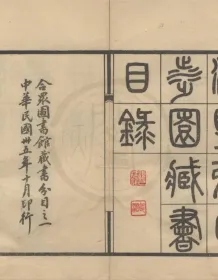 涉園藏書
目錄
合眾圖書館藏書分目之一
中華民國卅五年十月印行